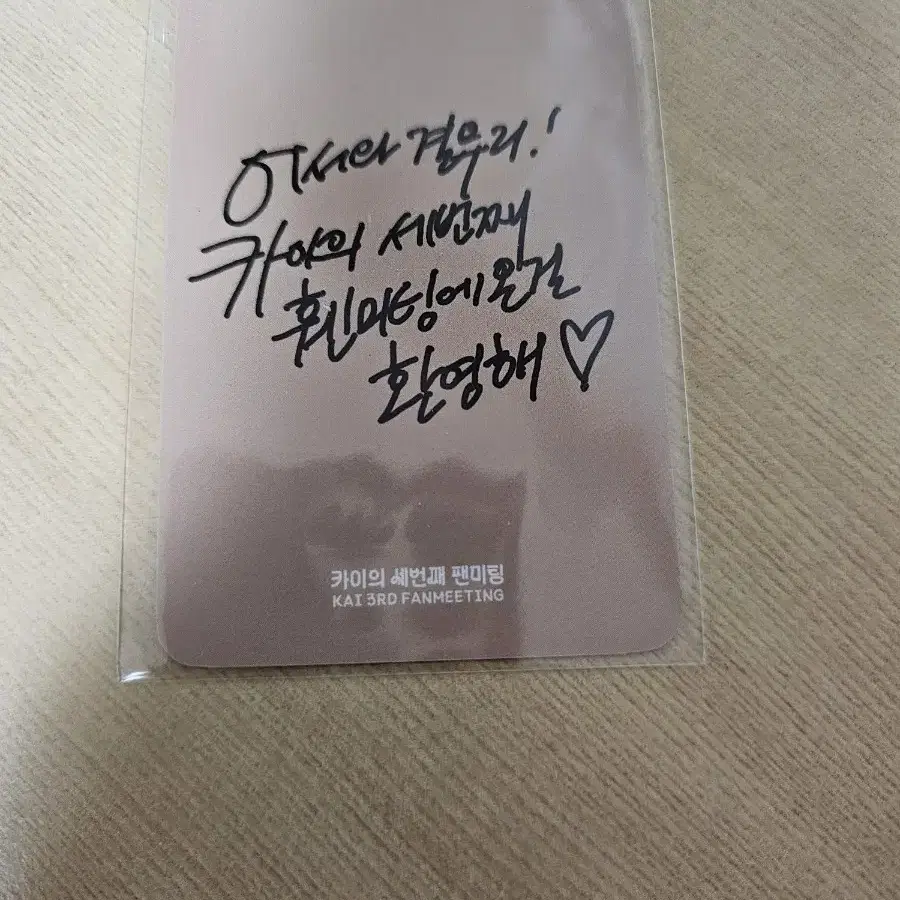 어서와 결우리!
카이의 세번째
훼미팅에 온걸
환영해♡
카이의 세번째 팬미팅
KAI 3RD FANMEETING